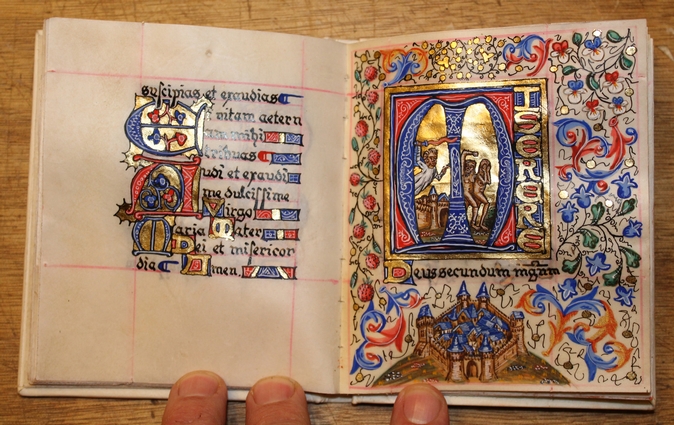 suscipias et exaudias
Et vitam aetern
am mihi
tribuas
Audi et exaudi
me dulcissime
Virgo
Maria Mater
Dei et misericor
diae Amen.
MISERERE
Deus secundum magnam